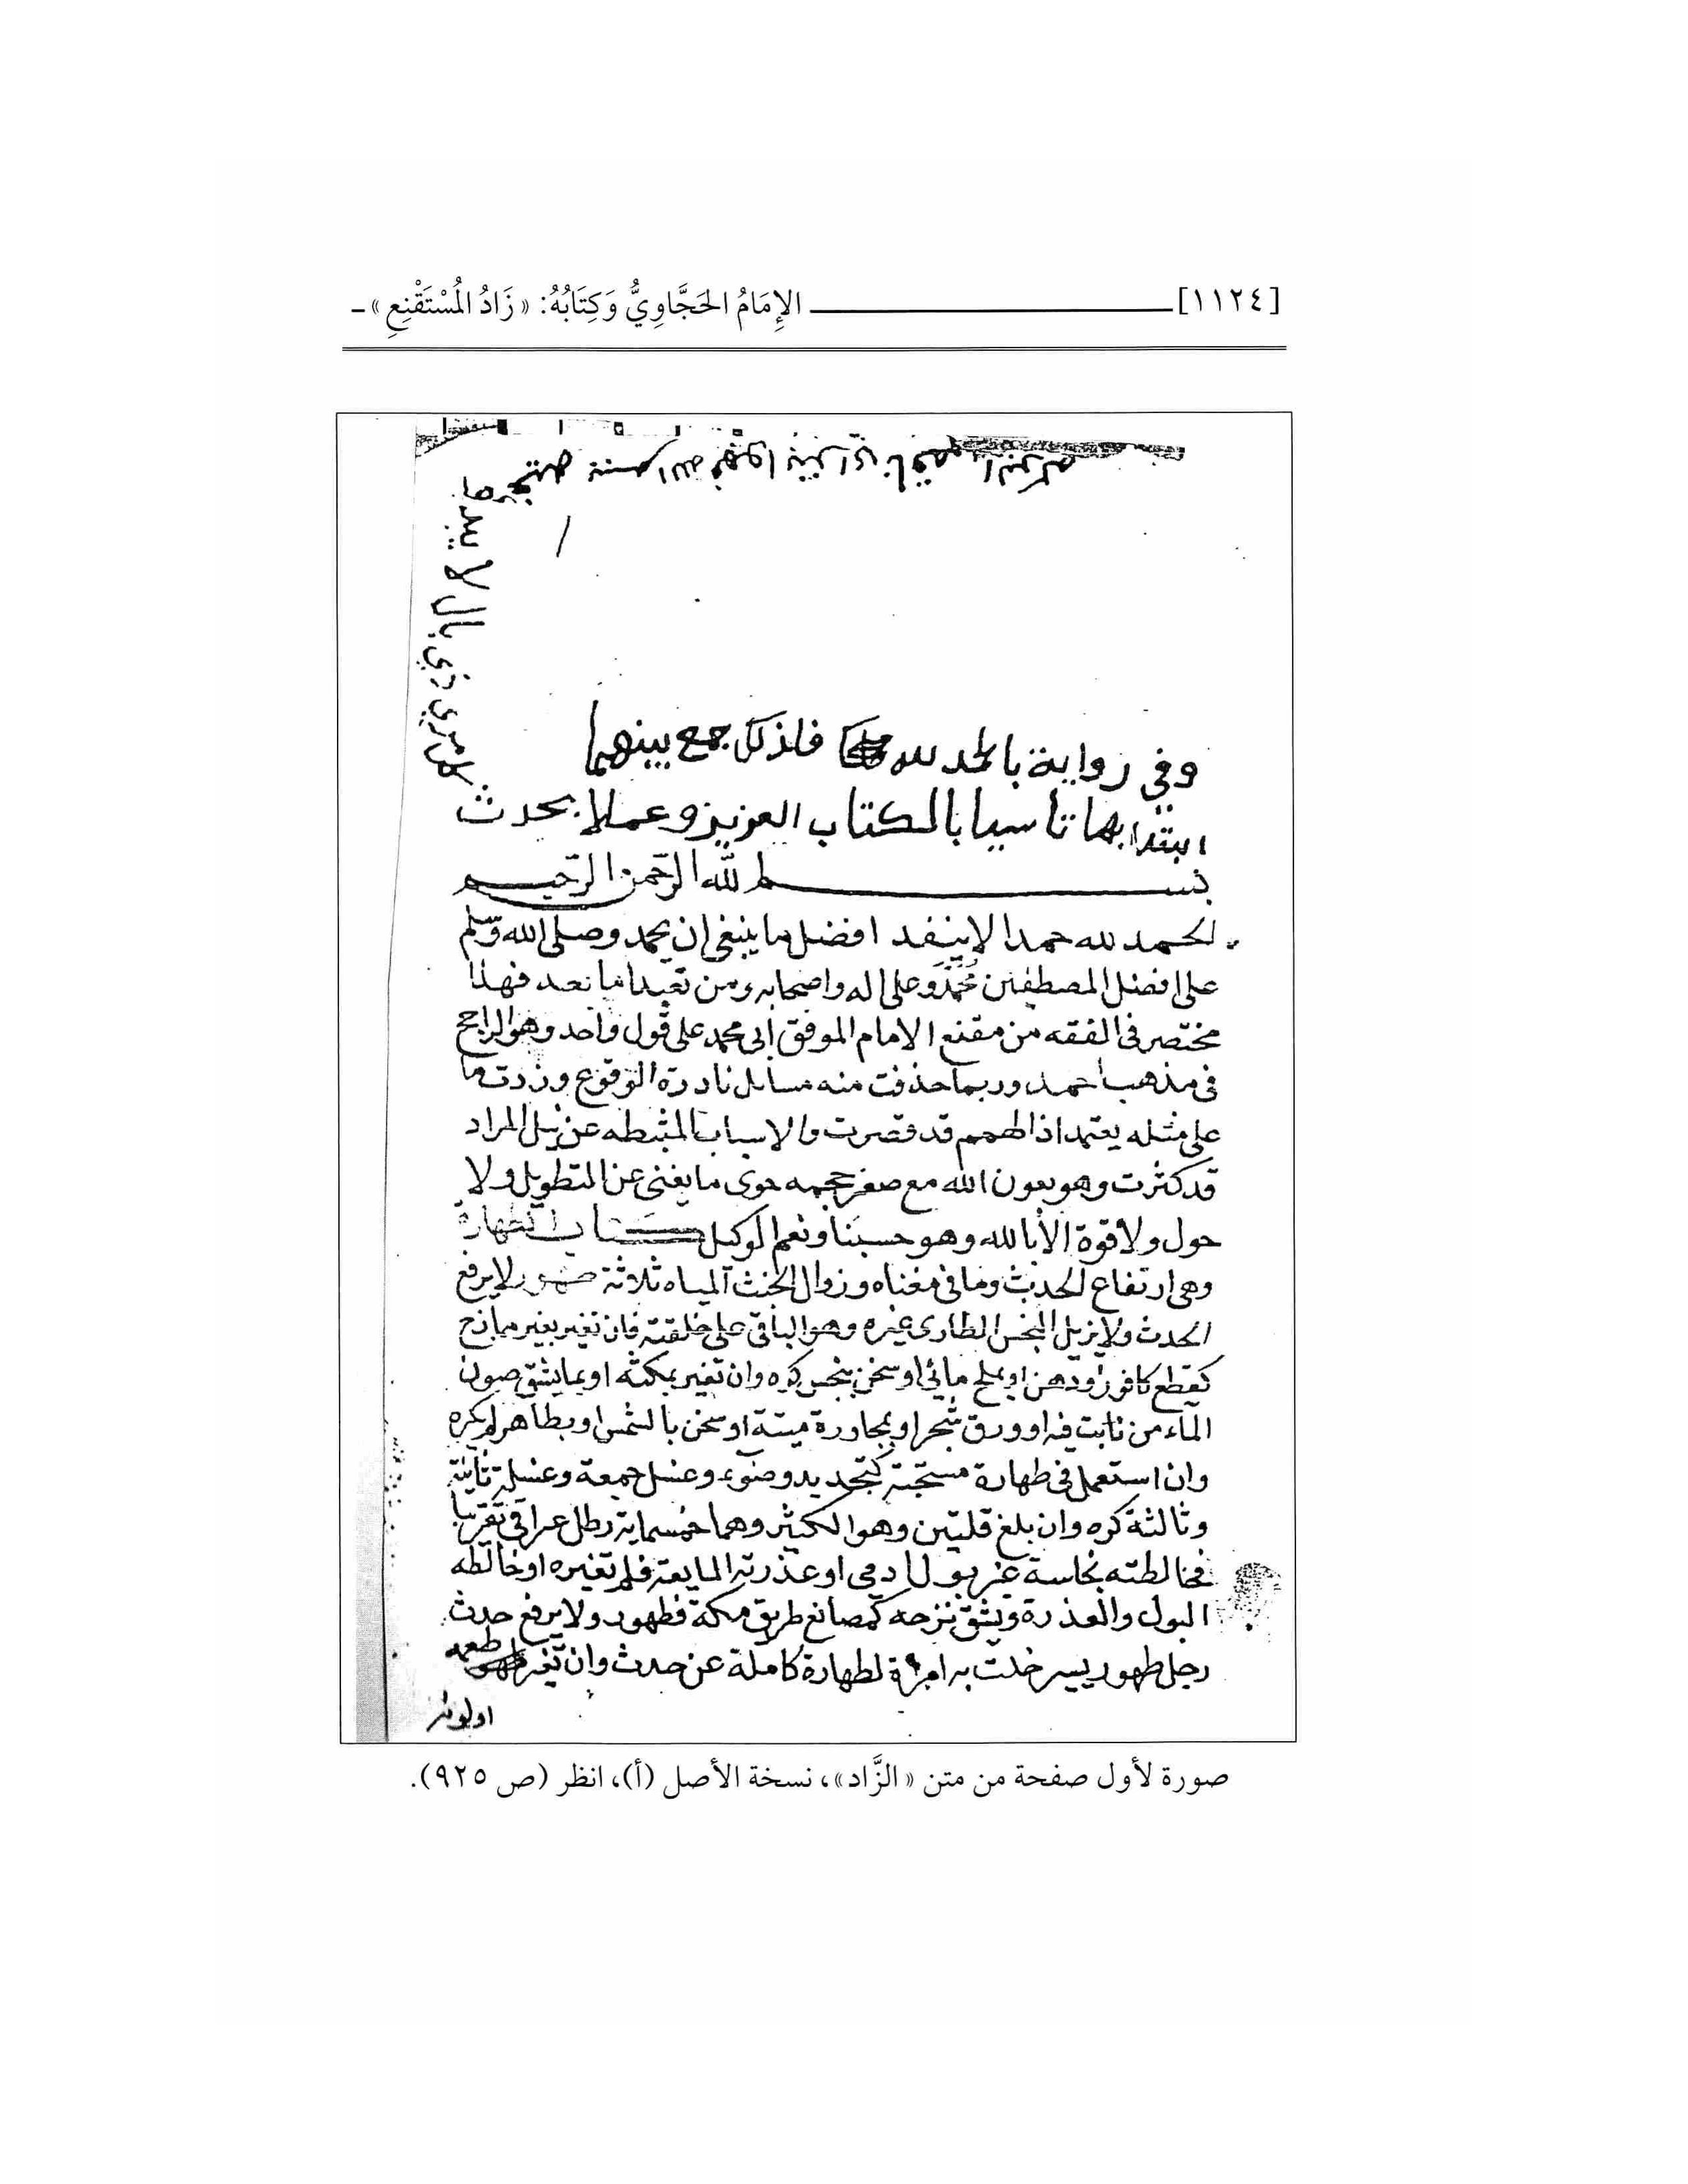 [١١٢٤] الإِمَامُ الحَجَّاوِيُّ وَكِتَابُهُ: «زَادُ المُسْتَقْنِعِ»
كل امري ذي بال لا يبدا
وفي رواية بالحمد لله فلذلك جمع بينهما
ابتدا بها تاسيا بالكتاب العزيز وعملا بحدث
بسم الله الرحمن الرحيم
الحمد لله حمدا لا ينفد افضل ما ينبغي ان يحمد وصلى الله وسلم
على افضل المصطفين محمد وعلى اله واصحابه ومن تعبد اما بعد فهذا
مختصر في الفقه من مقنع الامام الموفق ابي محمد على قول واحد وهو الراجح
في مذهب احمد وربما حذفت منه مسايل نادرة الوقوع وزدت ما
على مثله يعتمد اذ الهمم قد قصرت والاسباب المثبطه عن نيل المراد
قد كثرت وهو بعون الله مع صغر حجمه حوى ما يغني عن التطويل ولا
حول ولا قوة الا بالله وهو حسبنا ونعم الوكيل كتاب الطهارة
وهي ارتفاع الحدث وما في معناه وزوال الخبث المياه ثلاثة طهور لا يرفع
الحدث ولا يزيل النجس الطاري غيره وهو الباقي على خلقته فان تغير بغير ممازج
كقطع كافور او دهن او بملح مائي او سخن بنجس كره وان تغير بمكثه او بما يشق صون
الماء من نابت فيه او ورق شجر او بمجاورة ميتة او سخن بالشمس او بطاهر لم يكره
وان استعمل في طهارة مستحبة كتجديد وضوء وغسل جمعة وغسلة ثانية
وثالثة كره وان بلغ قلتين وهو الكثير وهما خمسماية رطل عراقي تقريبا
فخالطته نجاسة غير بول ادمي او عذرته المايعة فلم تغيره او خالطه
البول والعذرة ويشق نزحه كمصانع طريق مكة فطهور ولا يرفع حدث
رجل طهور يسير خلت به امراة لطهارة كاملة عن حدث وان تغير طعمه
او لونه
صورة لأول صفحة من متن «الزَّاد»، نسخة الأصل (أ)، انظر (ص ٩٢٥).